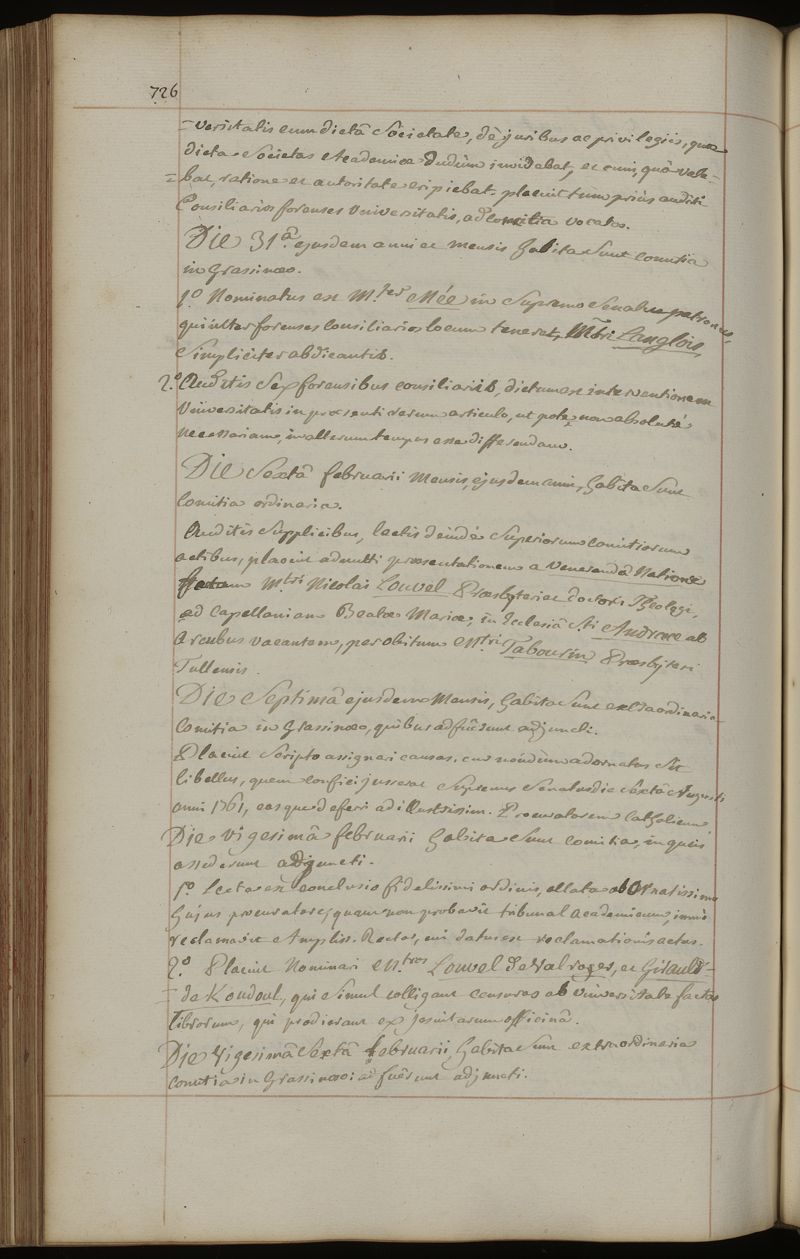 726
=versitatis cum dictâ Societate, de juribus ac privilegiis, quæ
dicta Societas Academiæ dudùm invidebat, et cum, quâ vale-
=bat, ratione et autoritate eripiebat. placuit tum priùs audiri
Consiliarios forenses Universitatis, ad Comitia vocatos.
Die 31.â ejusdem anni et mensis habita Sunt comitia
in Grassinæo.
1.º Nominatus est M.ter Mée in Supremo Senatu patronus,
qui inter forenses Consiliarios locum teneret, M.tri Langlois,
Simpliciter abdicantis.
2.º Auditis Sex forensibus consiliariis, dictum est interventionem
Universitatis in præsenti rerum articulo, ut potè non absolutè
necessariam, in alterum tempus esse differendam.
Die Sextâ februarii Mensis, ejusdem anni, habita Sunt
Comitia ordinaria.
Auditis Supplicibus, lectis deindè Superiorum comitiorum
actibus, placuit admitti præsentationem a Venerandâ Natione
factam M.tri Nicolai Louvel Presbyteri et doctoris Theologi,
ad Capellaniam Beatæ Mariæ, in Ecclesiâ S.ti Andreæ ab
Arcubus vacantem, per obitum M.tri Tabourin Presbyteri
Tullensis.
Die Septimâ ejusdem Mensis, habita Sunt extraordinaria
Comitia in Grassinæo, quibus adfuêrunt adjuncti.
Placuit Scripto assignari causas, cur nondùm adornatus Sit
libellus, quem confici jusserat Supremus Senatus die Sextâ Augusti
anni 1761, easque deferri ad illustrissim. Procuratorem Catholicum.
Die vigesimâ februarii habita Sunt comitia, in quis
assederunt adjuncti.
1.º Lecta est conclusio fidelissimi ordinis, allata ab Ornatissimo
hujus procuratore, quam non probavit tribunal Academicum, immò
reclamavit Ampliss. Rector, cui datus est reclamationis actus.
2.º Placuit Nominari M.tros Louvel de Valroger, et Girault-
=de Koudoul, qui Simul colligant censuras ab Universitate factas
librorum, qui prodierant ex jesuitarum officinâ.
Die Vigesimâ Sextâ februarii, habita Sunt extraordinaria
comitia in Grassinæo: adfuêrunt adjuncti.